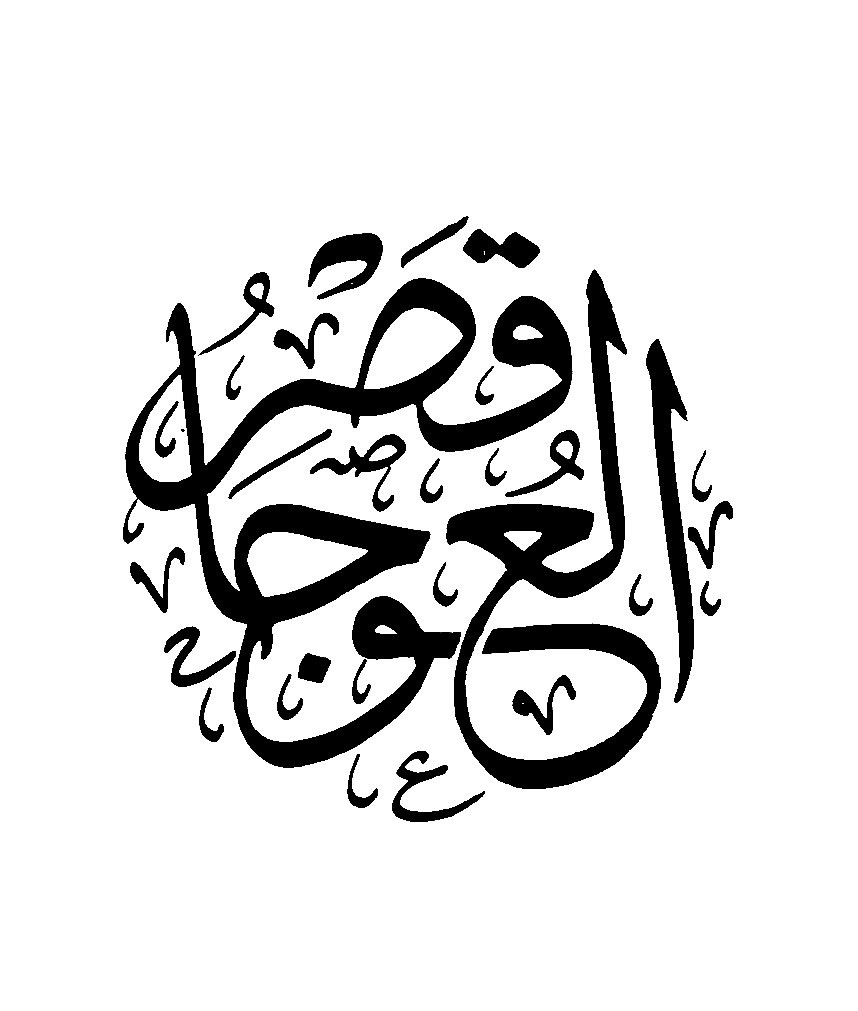 قصر
العوجا